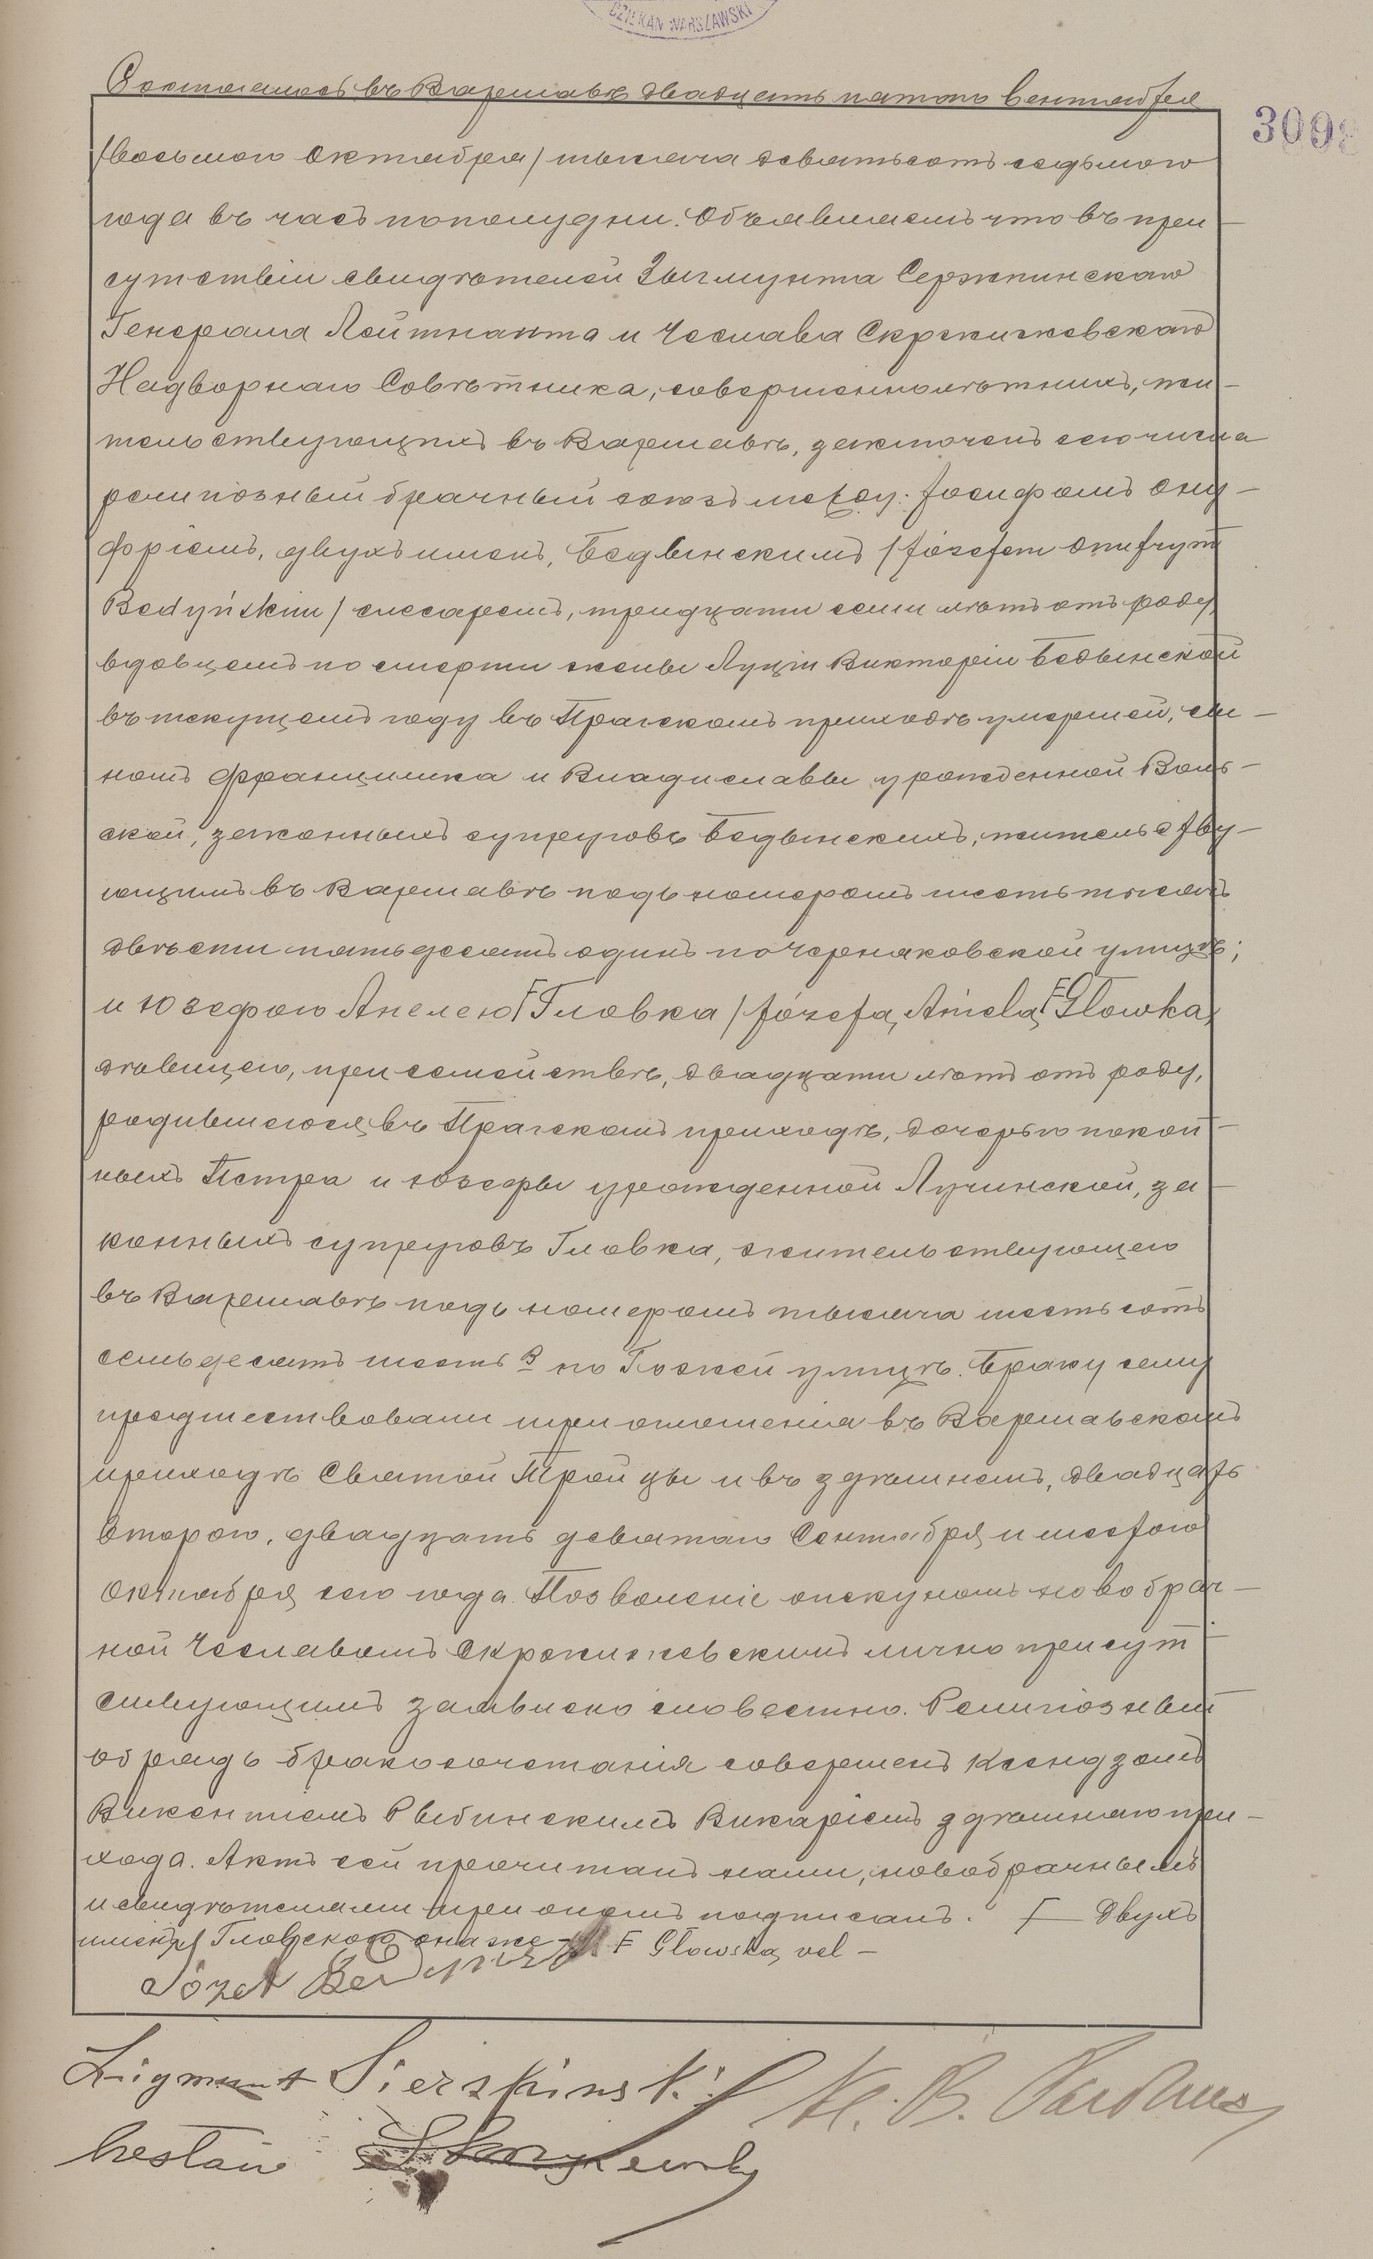 DZIEKAN WARSZAWSKI
Состоялось въ Варшавѣ двадцать пятого Сентября
3098
/восьмого Октября/ тысяча девятьсотъ седьмого
года въ часъ пополудни. Объявляемъ что въ при
сутствіи свидѣтелей Зыгмунта Сержпинскаго
Генерала Лейтнанта и Чеслава Скржижевскаго
Надворнаго Совѣтника, совершеннолѣтнихъ, жи-
тельствующихъ въ Варшавѣ, заключенъ сего числа
религіозный брачный союзъ между: Іосифомъ Ону-
фріемъ, двухъ именъ, Бедынскимъ /Józefem Onufrym
Bedyńskim/ слесаремъ, тридцати семи лѣтъ отъ роду,
вдовцемъ по смерти жены Луціи Викторіи Бедынской
въ текущемъ году въ Пражскомъ приходѣ умершей, сы-
номъ Францишка и Владиславы урожденной Воль-
ской, законныхъ супруговъ Бедынскихъ, жительству-
ющимъ въ Варшавѣ подъ номеромъ шесть тысячъ
двѣсти пятьдесятъ одинъ по Черняковской улицѣ;
и Юзефою Анелею Гловка /Józefą Anielą Głowka/
дѣвицею, при семействѣ, двадцати лѣтъ отъ роду,
родившеюся въ Пражскомъ приходѣ, дочерью покой-
ныхъ Петра и Юзефы урожденной Лучинской, за-
конныхъ супруговъ Гловка, жительствующею
въ Варшавѣ подъ номеромъ тысяча шестьсотъ
семьдесятъ шесть В по Гожей улицѣ. Браку сему
предшествовали три оглашенія въ Варшавскомъ
приходѣ Святой Тройцы и въ здѣшнемъ, двадцать
второго, двадцать девятаго Сентября и шестого
Октября сего года. Позволеніе опекуномъ новобрач-
ной Чеславомъ Скржижевскимъ лично присут-
ствующимъ заявлено словестно. Религіозный
обрядъ бракосочетанія совершенъ Ксендзомъ
Викентіемъ Рыбинскимъ Викаріемъ здѣшняго при-
хода. Актъ сей прочитанъ нами, новобрачнымъ
и свидѣтелями при ономъ подписанъ. Двухъ
именъ, Гловскою она же Głowską vel
Józef Bedyński
Zigmunt Sierzpinski
Czesław